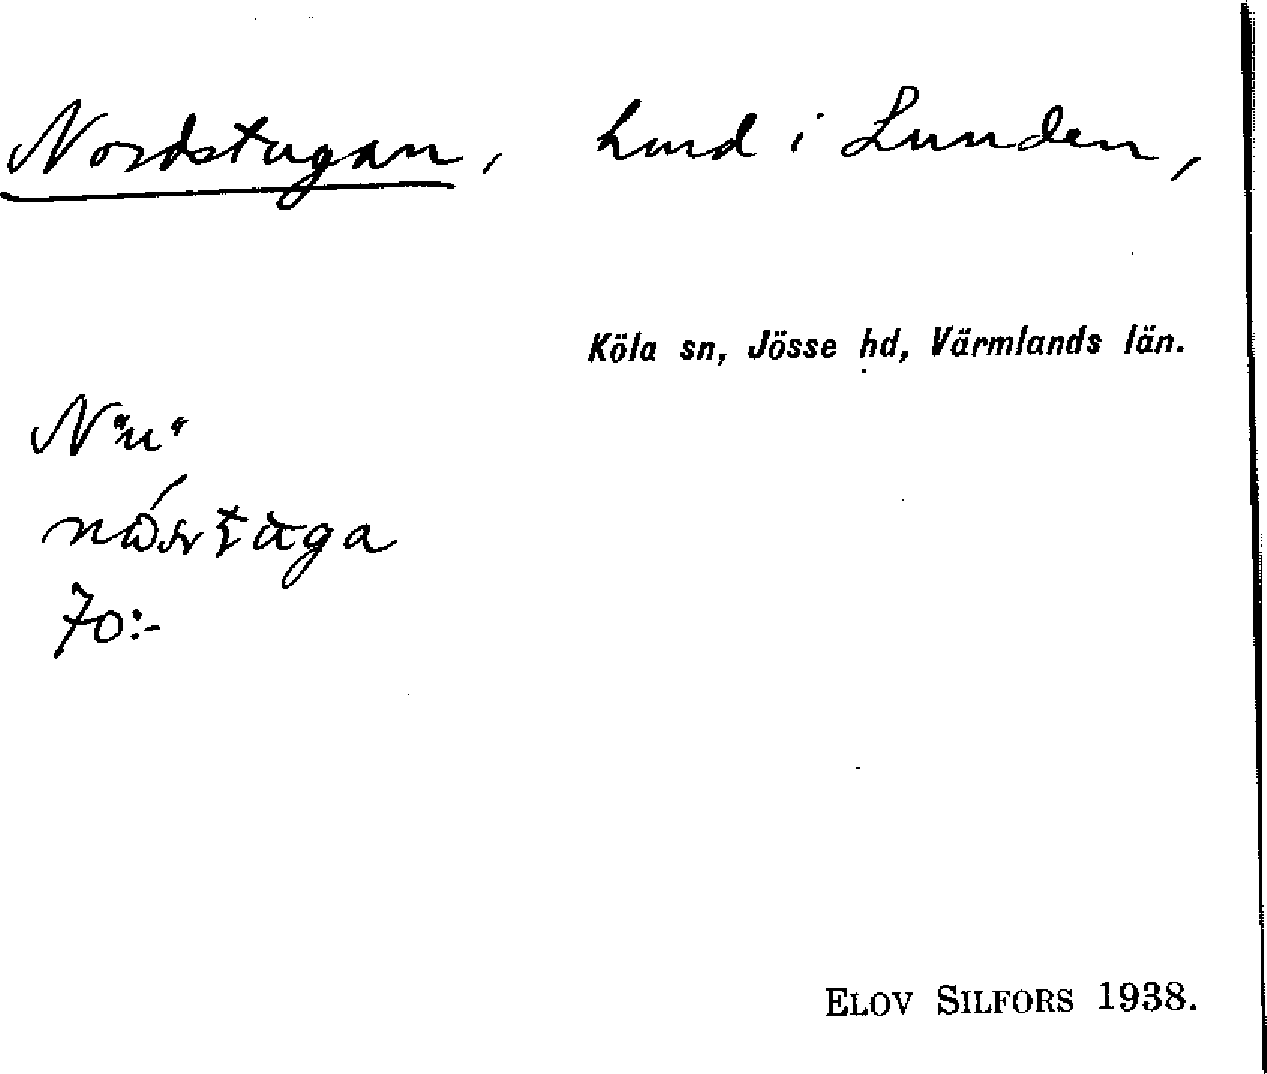 Nordstugan, hmd i Lunden,
Köla sn, Jösse hd, Värmlands län.
N"u"
70:-
ELOV SILFORS 1938.